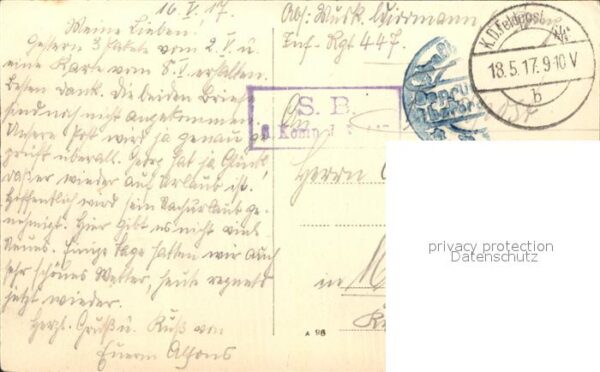 16. V. 17.
Meine Lieben!
Gestern 3 Pakete vom 2. V. u.
eine Karte vom 8. V. erhalten.
Besten Dank. Die beiden Briefe
sind noch nicht angekommen.
Unsere Post wird ja genau ge-
prüft überall. Jedog hat ja Glück,
daß er wieder auf Urlaub ist.
Hoffentlich wird sein Nachurlaub ge-
nehmigt. Hier gibt es nicht viel
Neues. Einige Tage hatten wir auch
sehr schönes Wetter, heute regnets
jetzt wieder.
Herzl. Gruß u. Kuß von
Euerm Alfons
Abs: Musk.
Inf. Rgt 447.
S. B.
K.D. Feldpost
18.5.17. 9-10 V
b
Herrn
in M
A 98
privacy protection
Datenschutz